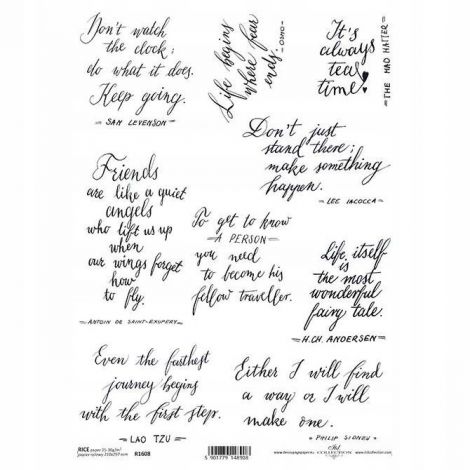 Don't watch
the clock;
do what it does.
Keep going.
SAN LEVENSON
Life begins
where fear
ends.
OSHO
It's
always
tea
time!
THE MAD HATTER
Don't just
stand there;
make something
happen.
LEE IACOCCA
Friends
are like a quiet
angels
who lift us up
when
our wings forget
how
to fly.
ANTOIN DE SAINT-EXUPERY
To get to know
A PERSON
you need
to become his
fellow traveller.
Life itself
is
the most
wonderful
fairy tale.
H.CH. ANDERSEN
Even the farthest
journey begins
with the first step.
LAO TZU
Either I will find
a way or I will
make one.
PHILIP SIDNEY
RICE paper 25-30g/m²
papier ryżowy 210x297 mm
R1608
5 901779 548908
www.decoupagepapers.com
ITD
COLLECTION
www.itdcollection.com